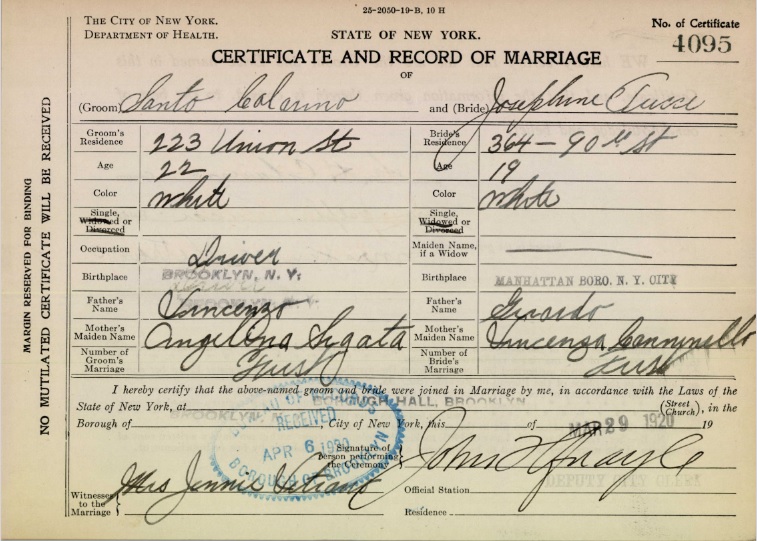 25-2050-19-B, 10 H
THE CITY OF NEW YORK.
DEPARTMENT OF HEALTH.
STATE OF NEW YORK.
No. of Certificate
4095
CERTIFICATE AND RECORD OF MARRIAGE
OF
(Groom) Santo and (Bride) Josephine Tucci
Groom's Residence 223 Union St Bride's Residence 364 - 90th St
Age 22 Age 19
Color White Color White
Single, Widowed or Divorced Single, Widowed or Divorced
Occupation Driver Maiden Name, if a Widow
Birthplace BROOKLYN, N. Y. Birthplace MANHATTAN BORO. N. Y. CITY
BROOKLYN, N. Y.
Father's Name Vincenzo Father's Name
Mother's Maiden Name Angelina Mother's Maiden Name Vincenza
Number of Groom's Marriage First Number of Bride's Marriage First
I hereby certify that the above-named groom and bride were joined in Marriage by me, in accordance with the Laws of the
State of New York, at BOROUGH HALL, BROOKLYN (Street) (Church), in the
Borough of BROOKLYN City of New York, this of MAR 29 1920 19
RECEIVED
APR 6 1920
BOROUGH OF BROOKLYN
Signature of person performing the Ceremony John
DEPUTY CITY CLERK
Witnesses to the Marriage Mrs Jennie
Official Station
Residence
MARGIN RESERVED FOR BINDING
NO MUTILATED CERTIFICATE WILL BE RECEIVED